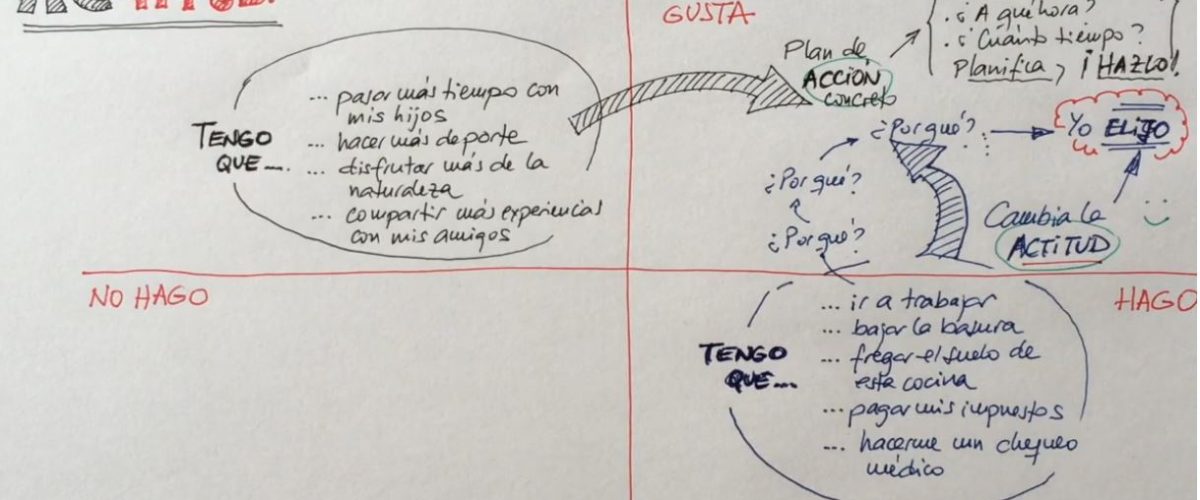 GUSTA
. ¿A qué hora?
. ¿Cuánto tiempo?
Planifica, ¡HAZLO!
Plan de
ACCIÓN
concreto
TENGO
QUE....
... pasar más tiempo con
mis hijos
... hacer más deporte
... disfrutar más de la
naturaleza
... compartir más experiencias
con mis amigos
¿Por qué?...
Yo ELIJO
¿Por qué?
¿Por qué?
Cambia la
ACTITUD
NO HAGO
HAGO
TENGO
QUE...
... ir a trabajar
... bajar la basura
... fregar el suelo de
esta cocina
... pagar mis impuestos
... hacerme un chequeo
médico